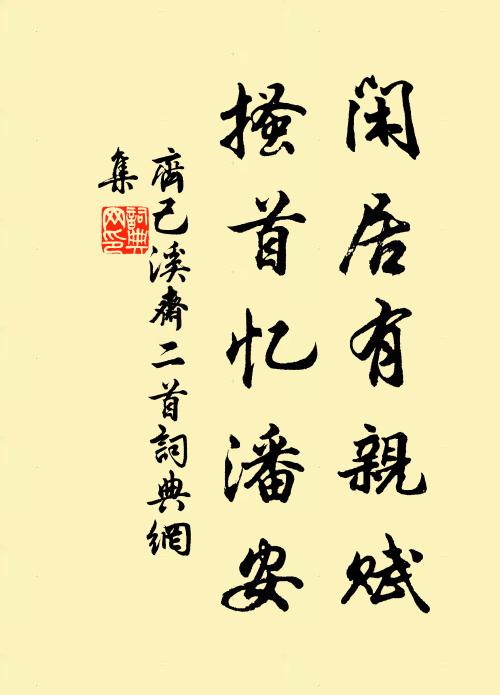 闲居有親赋
搔首忆潘安
齊己溪齋二首詞典網
集
詞典
网印